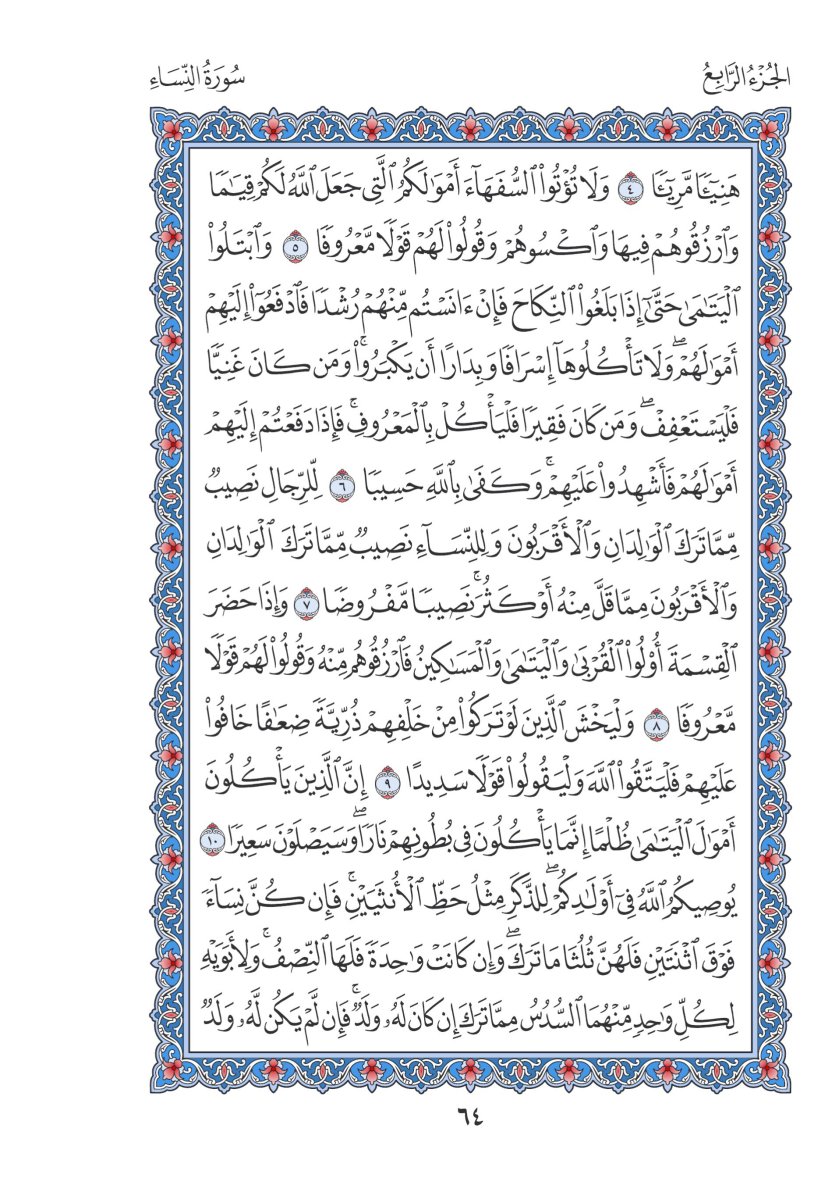 الجُزْءُ الرَّابِعُ
سُورَةُ النِّسَاءِ
هَنِيٓـٔٗا مَّرِيٓـٔٗا ٤ وَلَا تُؤۡتُواْ ٱلسُّفَهَآءَ أَمۡوَٰلَكُمُ ٱلَّتِي جَعَلَ ٱللَّهُ لَكُمۡ قِيَٰمٗا
وَٱرۡزُقُوهُمۡ فِيهَا وَٱكۡسُوهُمۡ وَقُولُواْ لَهُمۡ قَوۡلٗا مَّعۡرُوفٗا ٥ وَٱبۡتَلُواْ
ٱلۡيَتَٰمَىٰ حَتَّىٰٓ إِذَا بَلَغُواْ ٱلنِّكَاحَ فَإِنۡ ءَانَسۡتُم مِّنۡهُمۡ رُشۡدٗا فَٱدۡفَعُوٓاْ إِلَيۡهِمۡ
أَمۡوَٰلَهُمۡۖ وَلَا تَأۡكُلُوهَآ إِسۡرَافٗا وَبِدَارًا أَن يَكۡبَرُواْۚ وَمَن كَانَ غَنِيّٗا
فَلۡيَسۡتَعۡفِفۡۖ وَمَن كَانَ فَقِيرٗا فَلۡيَأۡكُلۡ بِٱلۡمَعۡرُوفِۚ فَإِذَا دَفَعۡتُمۡ إِلَيۡهِمۡ
أَمۡوَٰلَهُمۡ فَأَشۡهِدُواْ عَلَيۡهِمۡۚ وَكَفَىٰ بِٱللَّهِ حَسِيبٗا ٦ لِّلرِّجَالِ نَصِيبٞ
مِّمَّا تَرَكَ ٱلۡوَٰلِدَانِ وَٱلۡأَقۡرَبُونَ وَلِلنِّسَآءِ نَصِيبٞ مِّمَّا تَرَكَ ٱلۡوَٰلِدَانِ
وَٱلۡأَقۡرَبُونَ مِمَّا قَلَّ مِنۡهُ أَوۡ كَثُرَۚ نَصِيبٗا مَّفۡرُوضٗا ٧ وَإِذَا حَضَرَ
ٱلۡقِسۡمَةَ أُوْلُواْ ٱلۡقُرۡبَىٰ وَٱلۡيَتَٰمَىٰ وَٱلۡمَسَٰكِينُ فَٱرۡزُقُوهُم مِّنۡهُ وَقُولُواْ لَهُمۡ قَوۡلٗا
مَّعۡرُوفٗا ٨ وَلۡيَخۡشَ ٱلَّذِينَ لَوۡ تَرَكُواْ مِنۡ خَلۡفِهِمۡ ذُرِّيَّةٗ ضِعَٰفًا خَافُواْ
عَلَيۡهِمۡ فَلۡيَتَّقُواْ ٱللَّهَ وَلۡيَقُولُواْ قَوۡلٗا سَدِيدًا ٩ إِنَّ ٱلَّذِينَ يَأۡكُلُونَ
أَمۡوَٰلَ ٱلۡيَتَٰمَىٰ ظُلۡمًا إِنَّمَا يَأۡكُلُونَ فِي بُطُونِهِمۡ نَارٗاۖ وَسَيَصۡلَوۡنَ سَعِيرٗا ١٠
يُوصِيكُمُ ٱللَّهُ فِيٓ أَوۡلَٰدِكُمۡۖ لِلذَّكَرِ مِثۡلُ حَظِّ ٱلۡأُنثَيَيۡنِۚ فَإِن كُنَّ نِسَآءٗ
فَوۡقَ ٱثۡنَتَيۡنِ فَلَهُنَّ ثُلُثَا مَا تَرَكَۖ وَإِن كَانَتۡ وَٰحِدَةٗ فَلَهَا ٱلنِّصۡفُۚ وَلِأَبَوَيۡهِ
لِكُلِّ وَٰحِدٖ مِّنۡهُمَا ٱلسُّدُسُ مِمَّا تَرَكَ إِن كَانَ لَهُۥ وَلَدٞۚ فَإِن لَّمۡ يَكُن لَّهُۥ وَلَدٞ
٦٤